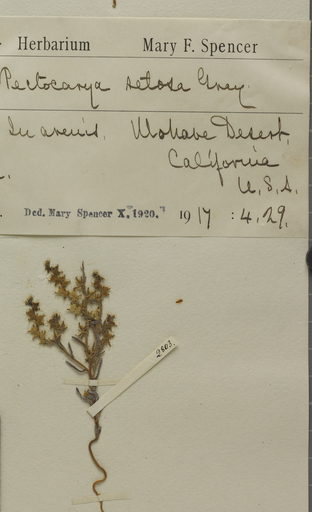 Herbarium Mary F. Spencer
Pectocarya setosa Gray.
In arenis. Mohave Desert,
California
U.S.A.
Ded. Mary Spencer X. 1920. 1917 : 4.29.
2603.